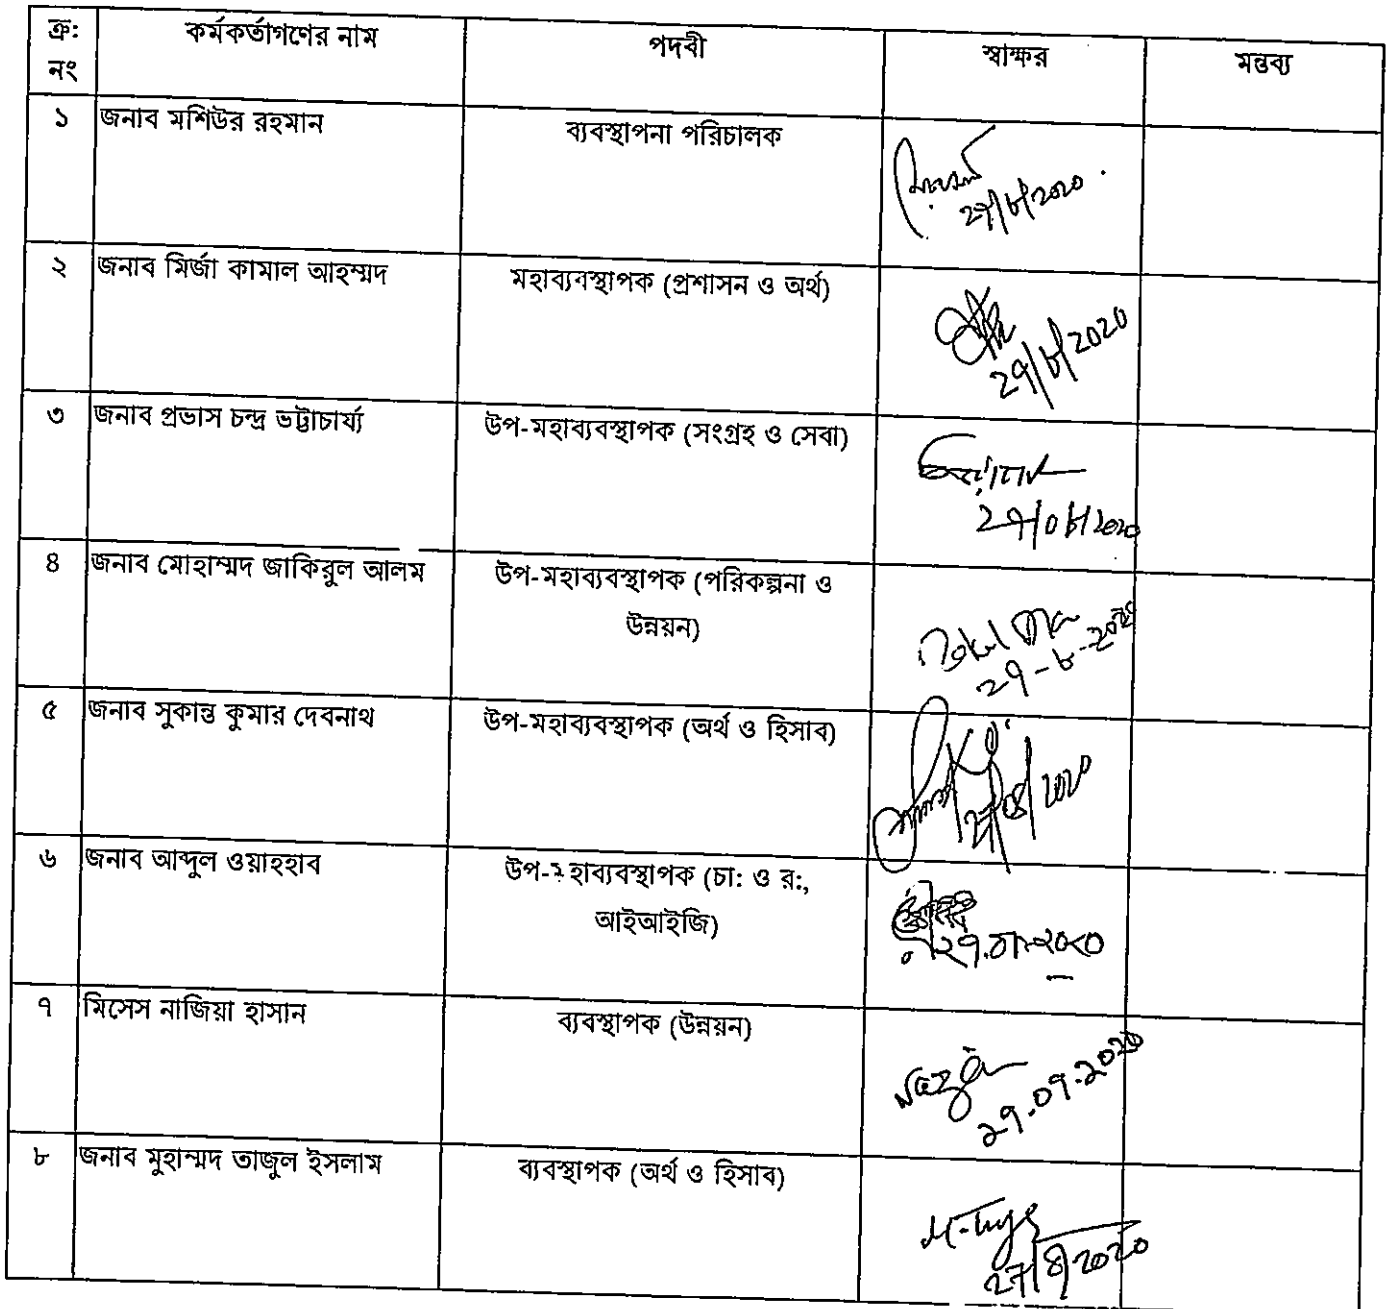 ক্র: নং	কর্মকর্তাগণের নাম	পদবী	স্বাক্ষর	মন্তব্য
১	জনাব মশিউর রহমান	ব্যবস্থাপনা পরিচালক
27/৮/২০২০
২	জনাব মির্জা কামাল আহম্মদ	মহাব্যবস্থাপক (প্রশাসন ও অর্থ)
২৭/৮/2020
৩	জনাব প্রভাস চন্দ্র ভট্টাচার্য্য	উপ-মহাব্যবস্থাপক (সংগ্রহ ও সেবা)
২৭/০৮/২০২০
৪	জনাব মোহাম্মদ জাকিরুল আলম	উপ-মহাব্যবস্থাপক (পরিকল্পনা ও
উন্নয়ন)
২৭-৮-২০২০
৫	জনাব সুকান্ত কুমার দেবনাথ	উপ-মহাব্যবস্থাপক (অর্থ ও হিসাব)
27/08/2020
৬	জনাব আব্দুল ওয়াহহাব	উপ-মহাব্যবস্থাপক (চা: ও র:,
আইআইজি)
৭	মিসেস নাজিয়া হাসান	ব্যবস্থাপক (উন্নয়ন)
২৭.০৭.২০২০
৮	জনাব মুহাম্মদ তাজুল ইসলাম	ব্যবস্থাপক (অর্থ ও হিসাব)
27/8/2020